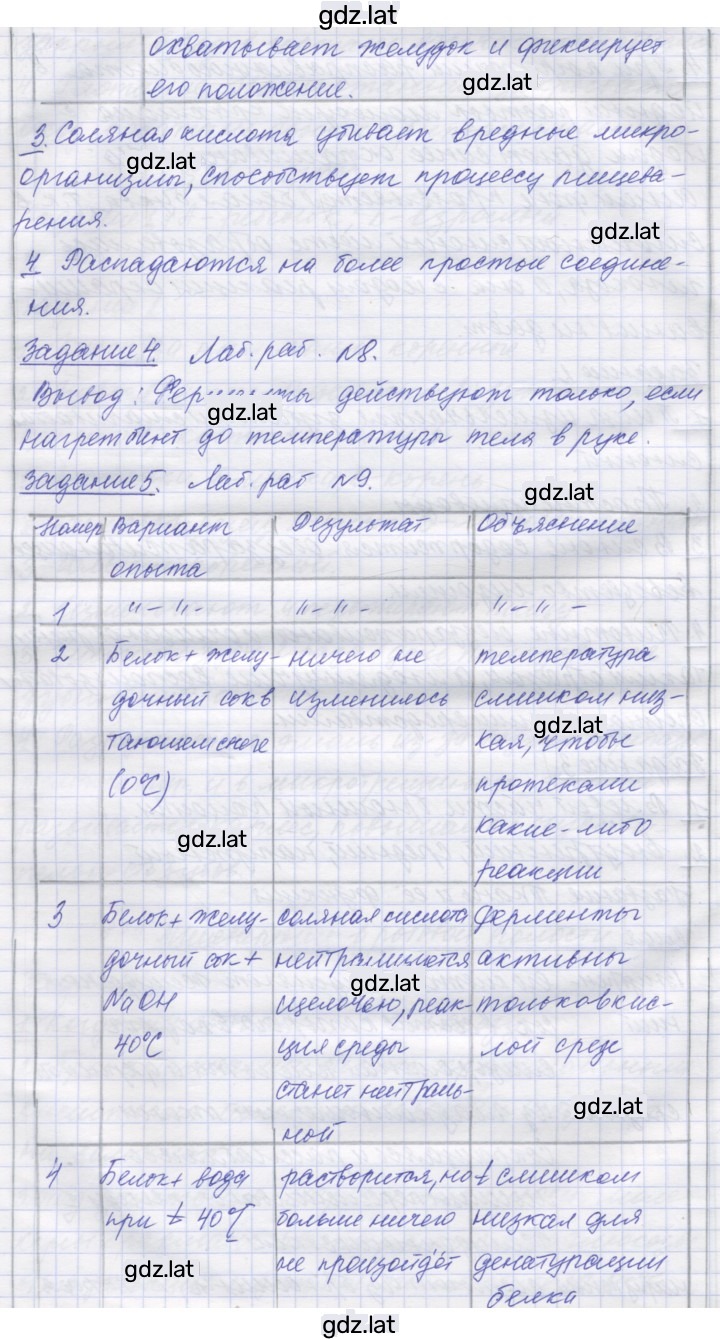 gdz.lat
охватывает желудок и фиксирует
его положение.
gdz.lat
3. Соляная кислота убивает вредные микро-
gdz.lat
организмы, способствует процессу пищева-
рения.
gdz.lat
4 Распадаются на более простые соедине-
ния.
Задание 4. Лаб. раб. №8.
Вывод: Ферменты действуют только, если
gdz.lat
нагрет бинт до температуры тела в руке.
Задание 5. Лаб. раб №9.
gdz.lat
Номер Вариант опыта Результат Объяснение
1 "-"- "-"- "-"-
2 Белок + желу- ничего не температура
дочный сок в изменилось слишком низ-
gdz.lat
тающем снеге кая, чтобы
(0°C) протекали
gdz.lat какие-либо
реакции
3 Белок + желу- соляная кислота Ферменты
дочный сок + нейтрализуется активны
gdz.lat
NaOH щелочью, реак- только в кис-
40°C ция среды лой среде
станет нейтраль-
gdz.lat
ной
4 Белок + вода растворится, но t слишком
при t 40°C больше ничего низкая для
gdz.lat не произойдёт денатурации
белка
gdz.lat